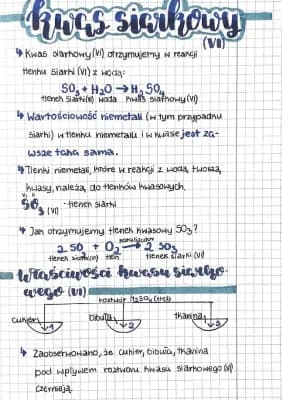 kwas siarkowy
(VI)
↳ Kwas siarkowy (VI) otrzymujemy w reakcji
tlenku siarki (VI) z wodą:
SO₃ + H₂O → H₂SO₄
tlenek siarki(VI) woda kwas siarkowy(VI)
↳ Wartościowość niemetali (w tym przypadku
siarki) w tlenku niemetalu i w kwasie jest za-
wsze taka sama.
↳ Tlenki niemetali, które w reakcji z wodą tworzą
kwasy, należą do tlenków kwasowych.
VI II
SO₃ (VI) - tlenek siarki
↳ Jak otrzymujemy tlenek kwasowy SO₃?
katalizator
2 SO + O₂ → 2 SO₃
tlenek siarki(IV) tlen tlenek siarki (VI)
Właściwości kwasu siarko-
wego (VI)
roztwór H₂SO₄
cukier bibuła tkanina
1 2 3
↳ Zaobserwowano, że cukier, bibuła, tkanina
pod wpływem roztworu kwasu siarkowego (VI)
czernieją.